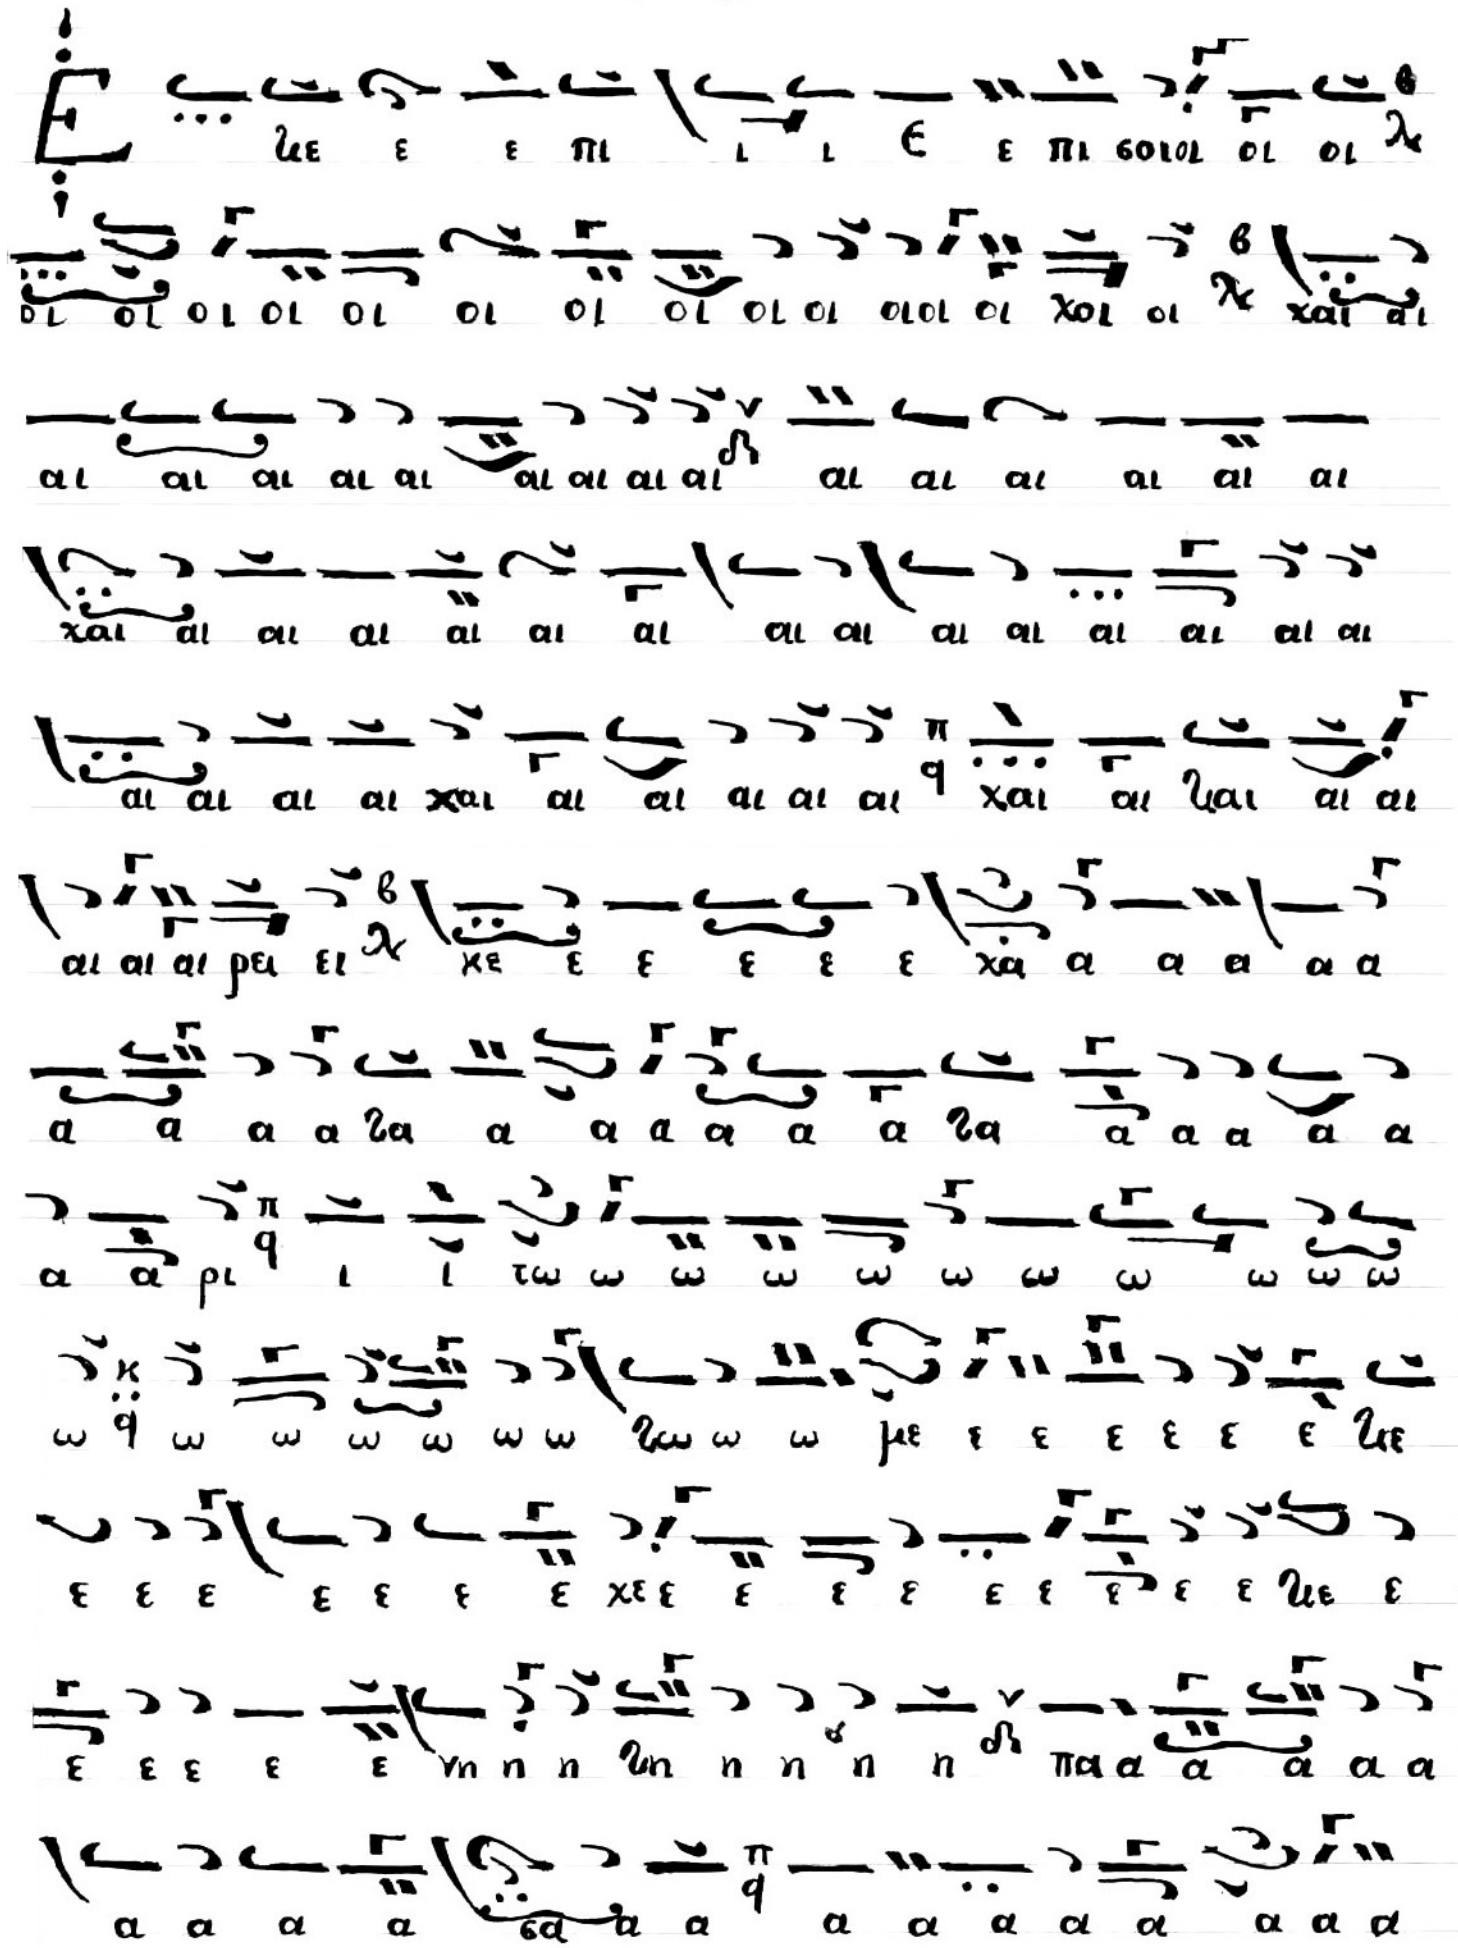 Ε γε ε ε πι ι ι Ε ε πι σοι οι οι οι
οι οι οι οι οι οι οι οι οι οι οι οι οι χοι οι χαι αι
αι αι αι αι αι αι αι αι αι αι αι αι αι αι αι
χαι αι αι αι αι αι αι αι αι αι αι αι αι αι αι
αι αι αι αι χαι αι αι αι αι αι π q χαι αι γαι αι αι
αι αι αι ρει ει κε ε ε ε ε ε χα α α α α α
α α α α γα α α α α α α γα α α α α α
α α ρι π q ι ι τω ω ω ω ω ω ω ω ω ω ω
ω κ q ω ω ω ω ω ω γω ω ω με ε ε ε ε ε ε γε
ε ε ε ε ε ε ε χε ε ε ε ε ε ε ε ε ε γε ε
ε ε ε ε ε νη η η γη η η η η πα α α α α α
α α α α σα α α π q α α α α α α α α